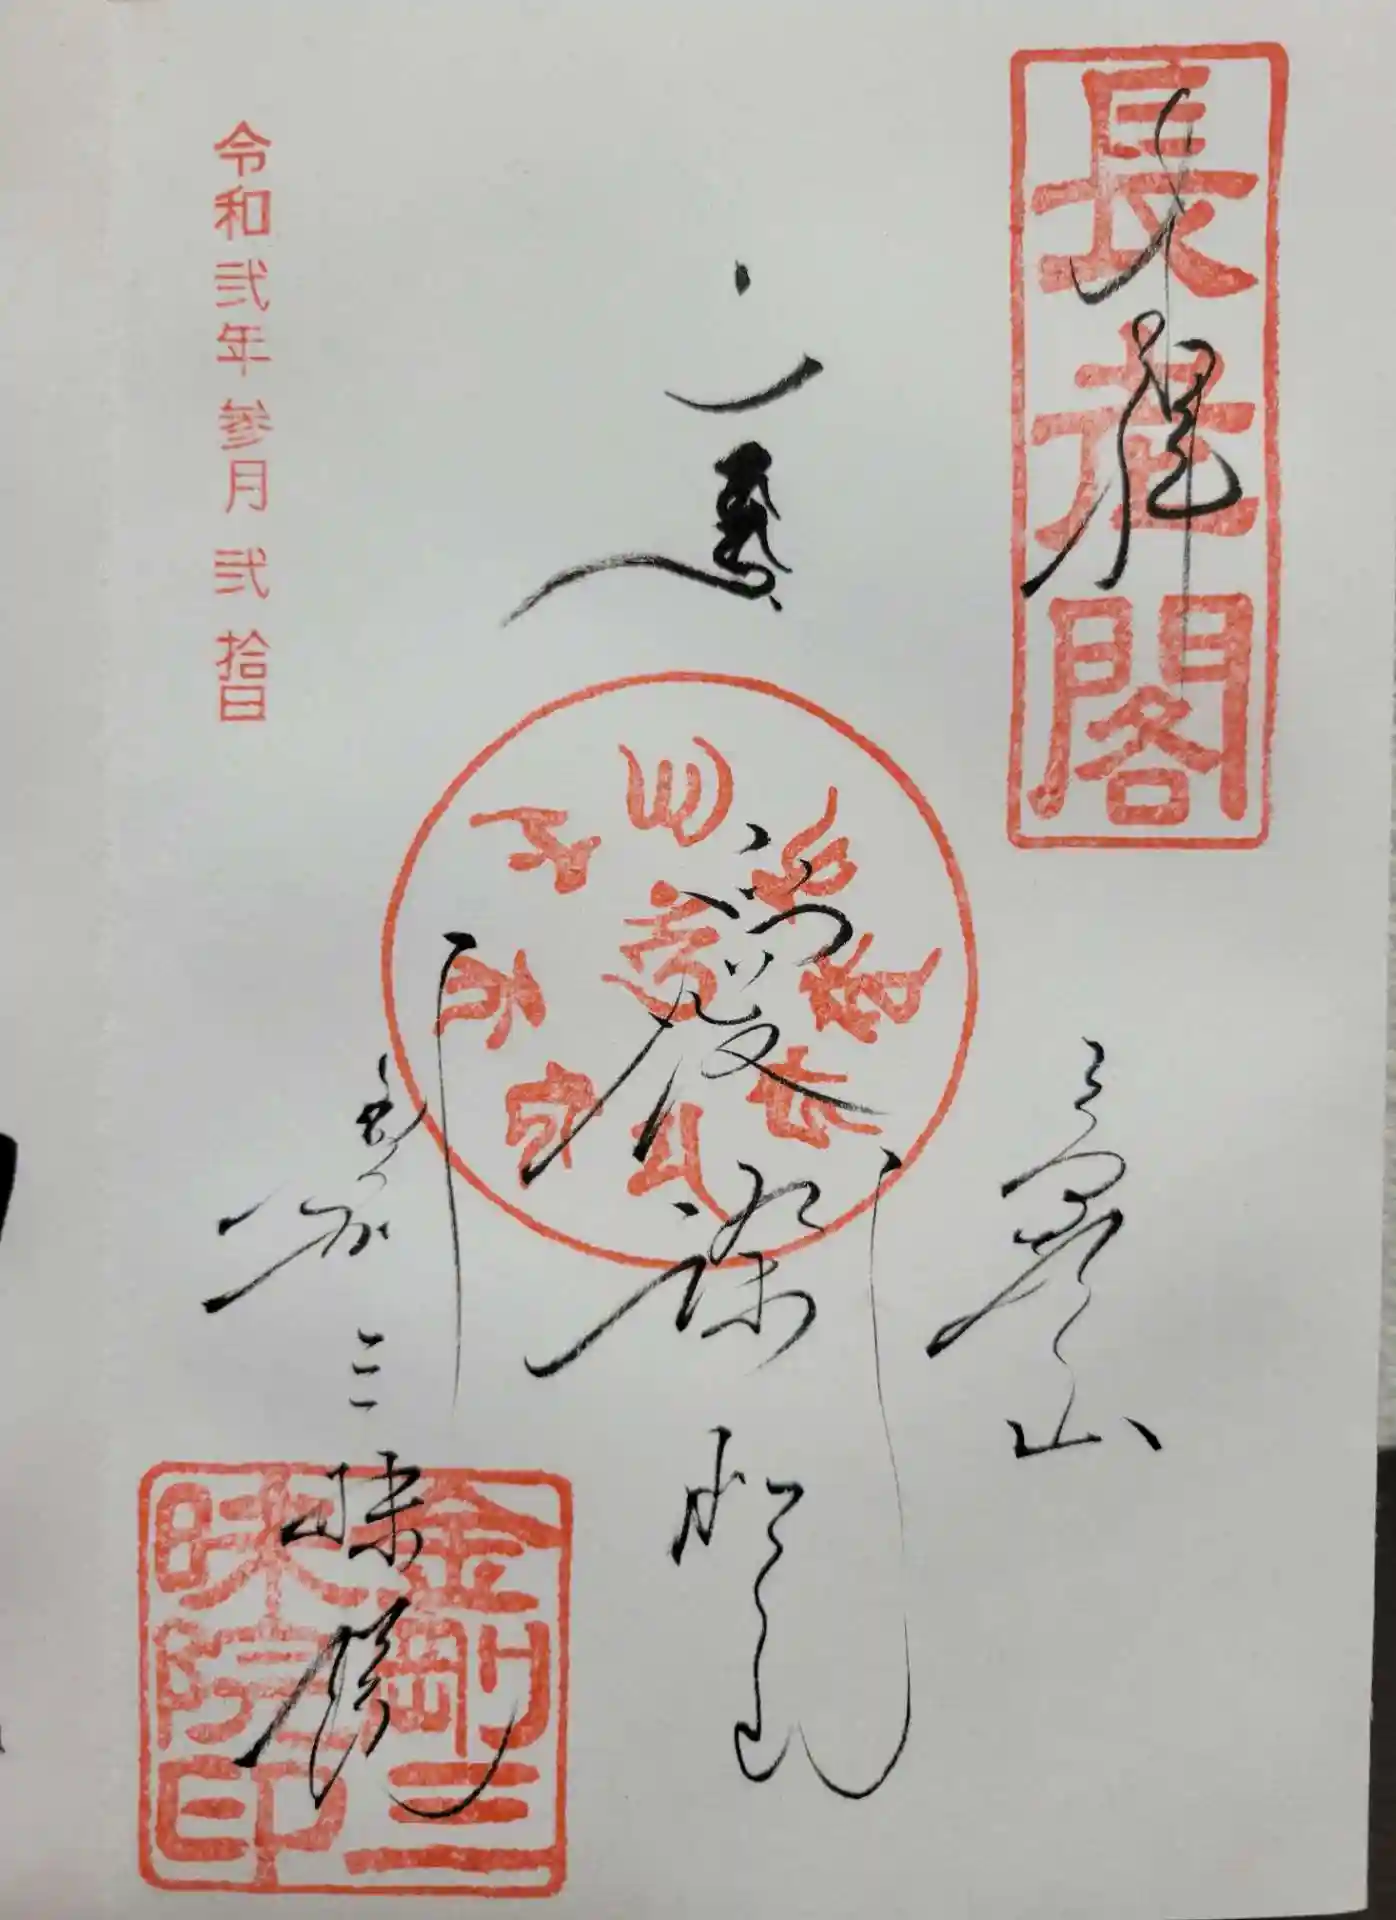 長老閣
奉拝
高野山
愛染明王
金剛三昧院
金剛三昧院印
令和弐年参月弐拾日